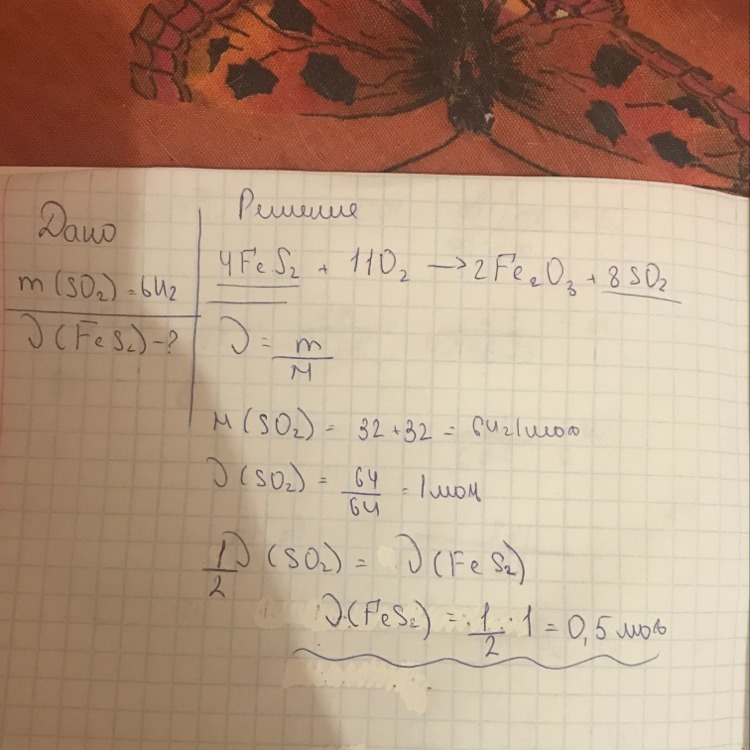 Дано
m(SO₂) = 64г
ν(FeS₂) - ?
Решение
4FeS₂ + 11O₂ → 2Fe₂O₃ + 8SO₂
ν = m/M
M(SO₂) = 32 + 32 = 64г/моль
ν(SO₂) = 64/64 = 1моль
1/2 ν(SO₂) = ν(FeS₂)
ν(FeS₂) = 1/2 · 1 = 0,5 моль